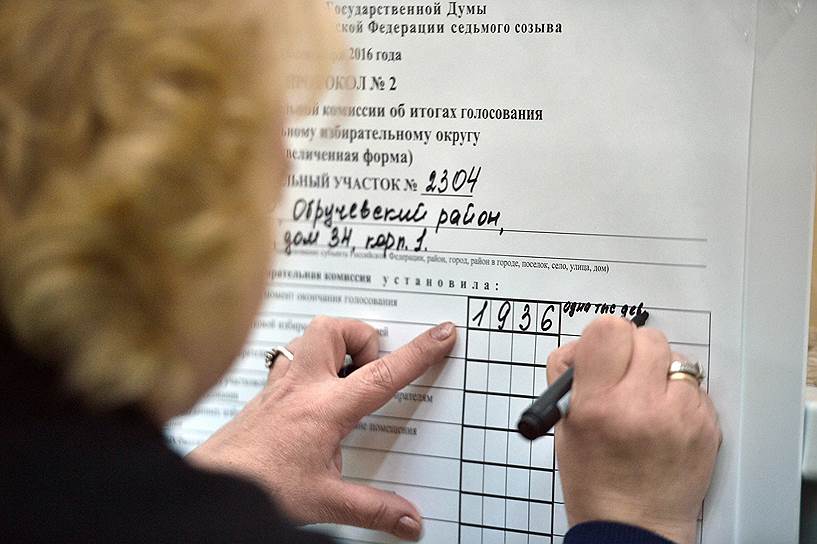 Государственной Думы
ской Федерации седьмого созыва
2016 года
ПРОТОКОЛ № 2
ьной комиссии об итогах голосования
ьному избирательному округу
величенная форма)
ЛЬНЫЙ УЧАСТОК № 2304
Обручевский район,
дом 34, корп. 1.
Федерации, район, город, район в городе, поселок, село, улица, дом)
рательная комиссия установила:
момент окончания голосования
1936
одна тыс дев
ирателям
помещения